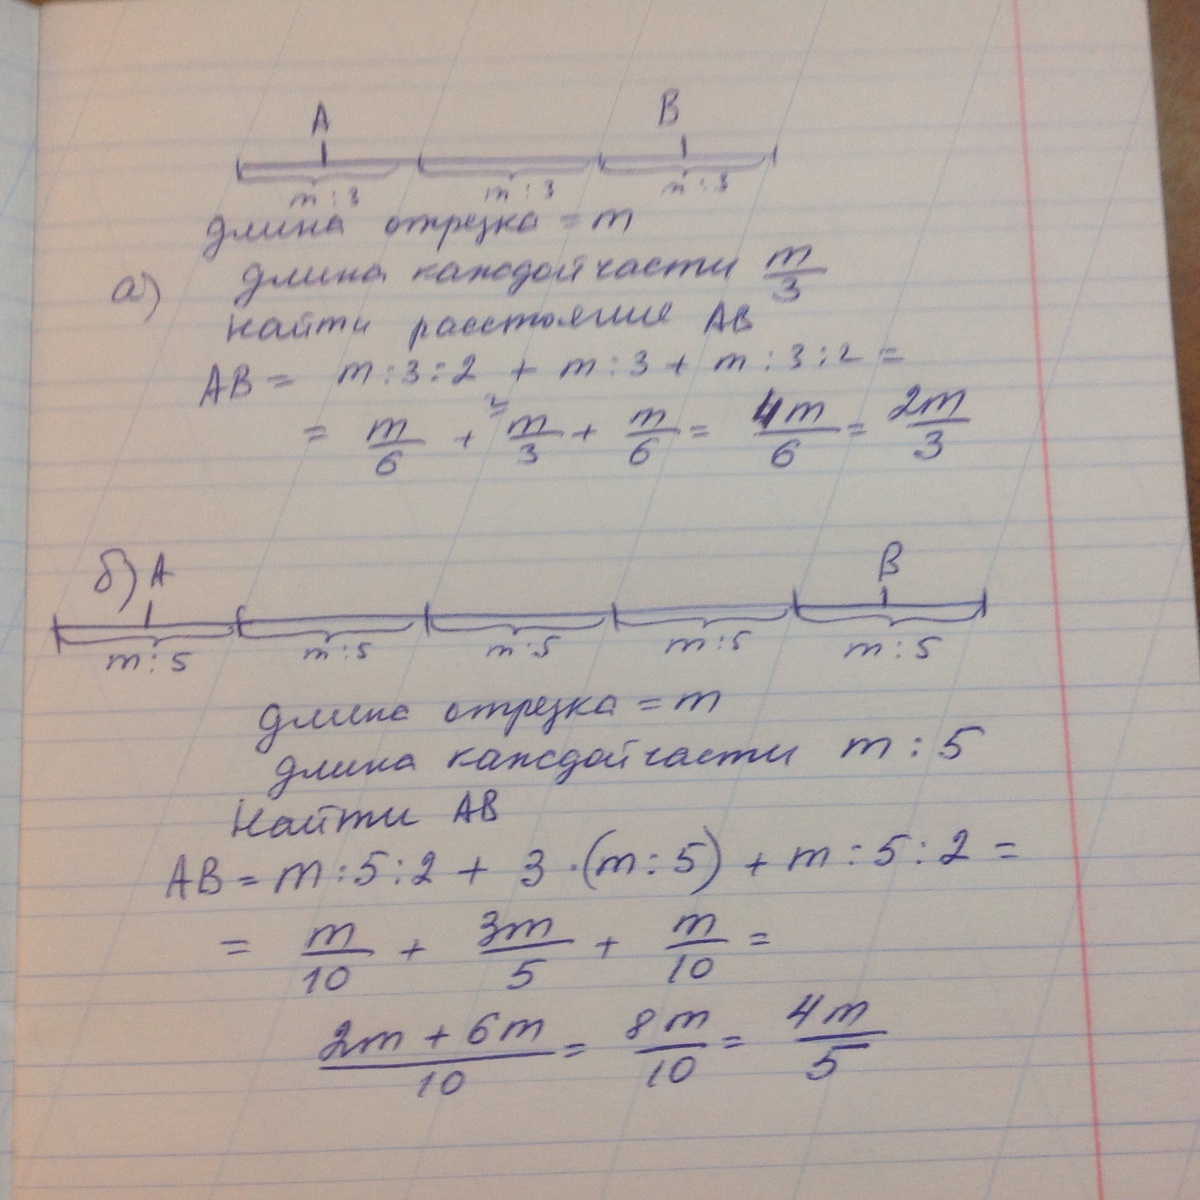 A B
m:3 m:3 m:3
длина отрезка = m
а) длина каждой части m/3
Найти расстояние AB
AB = m:3:2 + m:3 + m:3:2 =
= m/6 + ²m/3 + m/6 = 4m/6 = 2m/3
б) A B
m:5 m:5 m:5 m:5 m:5
длина отрезка = m
длина каждой части m:5
Найти AB
AB = m:5:2 + 3·(m:5) + m:5:2 =
= m/10 + 3m/5 + m/10 =
2m + 6m/10 = 8m/10 = 4m/5